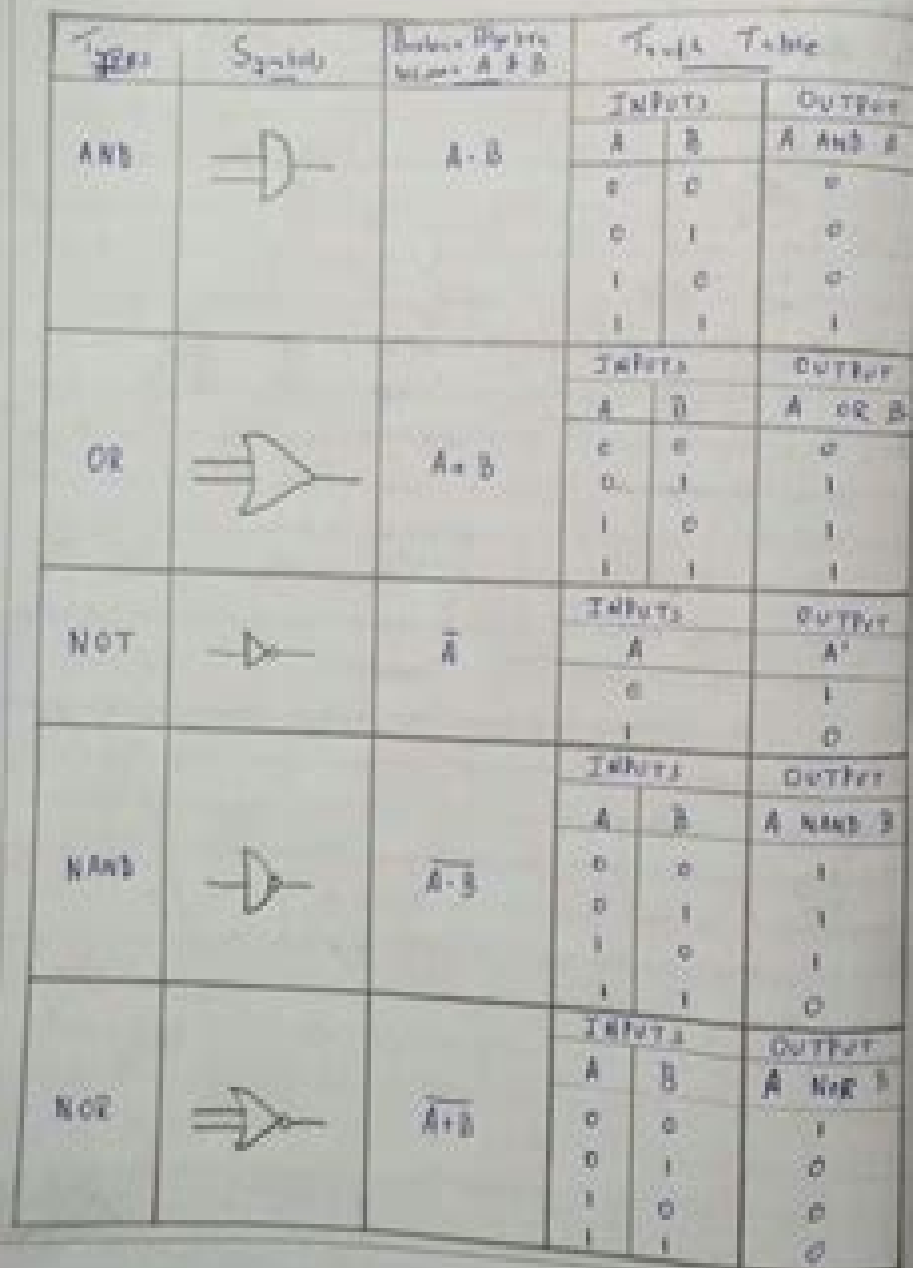 Types Symbols Boolean Algebra between A & B Truth Table
AND A · B
INPUTS OUTPUT
A B A AND B
0 0 0
0 1 0
1 0 0
1 1 1
OR A + B
INPUTS OUTPUT
A B A OR B
0 0 0
0 1 1
1 0 1
1 1 1
NOT A̅
INPUTS OUTPUT
A A'
0 1
1 0
NAND A̅ ̅·̅ ̅B̅
INPUTS OUTPUT
A B A NAND B
0 0 1
0 1 1
1 0 1
1 1 0
NOR A̅+̅B̅
INPUTS OUTPUT
A B A NOR B
0 0 1
0 1 0
1 0 0
1 1 0